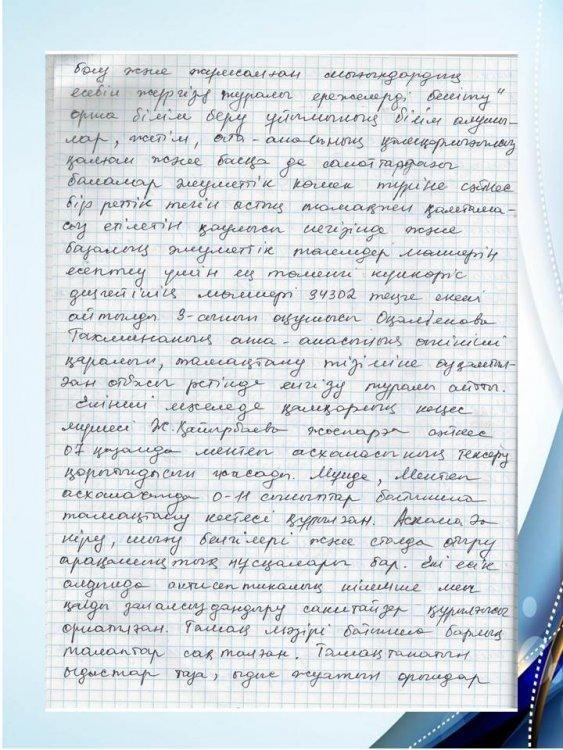 бөлу және жұмсалған шығындардың
есебін жүргізу туралы ережелерді бекіту"
орта білім беру ұйымының білім алушы-
лар, жетім, ата-анасының қамқорлығынсыз
қалған және басқа де санаттардағы
балалар әлеуметтік көмек түріне сәйкес
бір реттік тегін ыстық тамақпен қамтама-
сыз етілетін қаулысы негізінде және
базалық әлеуметтік төлемдер мөлшерін
есептеу үшін ең төменгі күнкөріс
деңгейінің мөлшері 34302 теңге екені
айтылды 3-сынып оқушысы
Тахминаның ата-анасының өтініші
қаралып, тамақтану тізіміне аз қамтыл-
ған отбасы ретінде енгізу туралы айтты.
Екінші мәселеде қамқорлық кеңес
мүшесі Ж.Қайырбаева жоспарға сәйкес
07 қазанда мектеп асханасының тексеру
қорытындысын жасады. Мұнда, Мектеп
асханасында 0-11 сыныптар бойынша
тамақтану кестесі құрылған. Асханаға
кіру, шығу белгілері және столда отыру
арақашықтық нұсқалары бар. Екі есік
алдында антисептикалық кілемше мен
қолды залалсыздандыру санитайзер құрылғысы
орнатылған. Тамақ мәзірі бойынша барлық
талаптар сақталған. Тамақтанатын
ыдыстар таза, ыдыс жуатын орындар